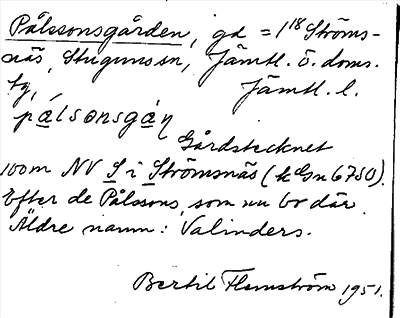 Pålssonsgården, gd = 1/18 Ströms-
näs, Stuguns sn, Jämtl. ö. doms.
tg, Jämtl. l.
pålsonsgån
Gårdstecknet
100m NV S i Strömsnäs (k Gn 6750).
Efter de Pålssons, som nu bo där.
Äldre namn: Valinders.
Bertil Flemström 1951.